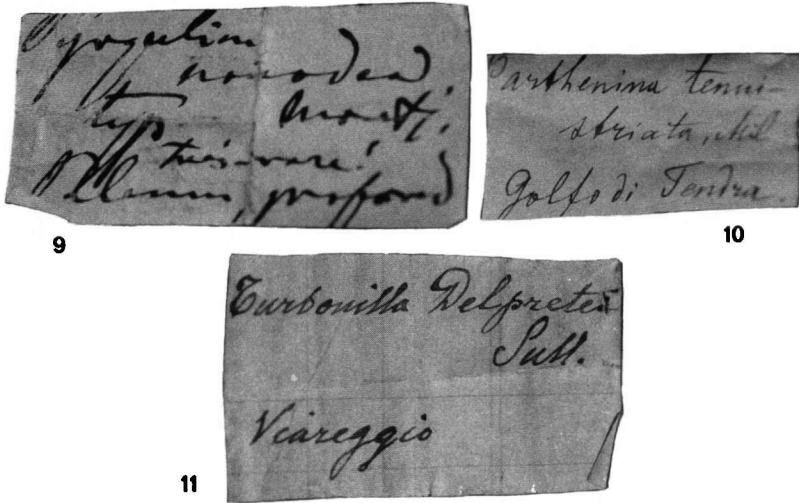 typ. mont,
très-rare!
profond
9
Parthenina tenui-
striata, Mil
Golfo di Tendra.
10
Turbonilla Delpretei
Sull.
Viareggio
11